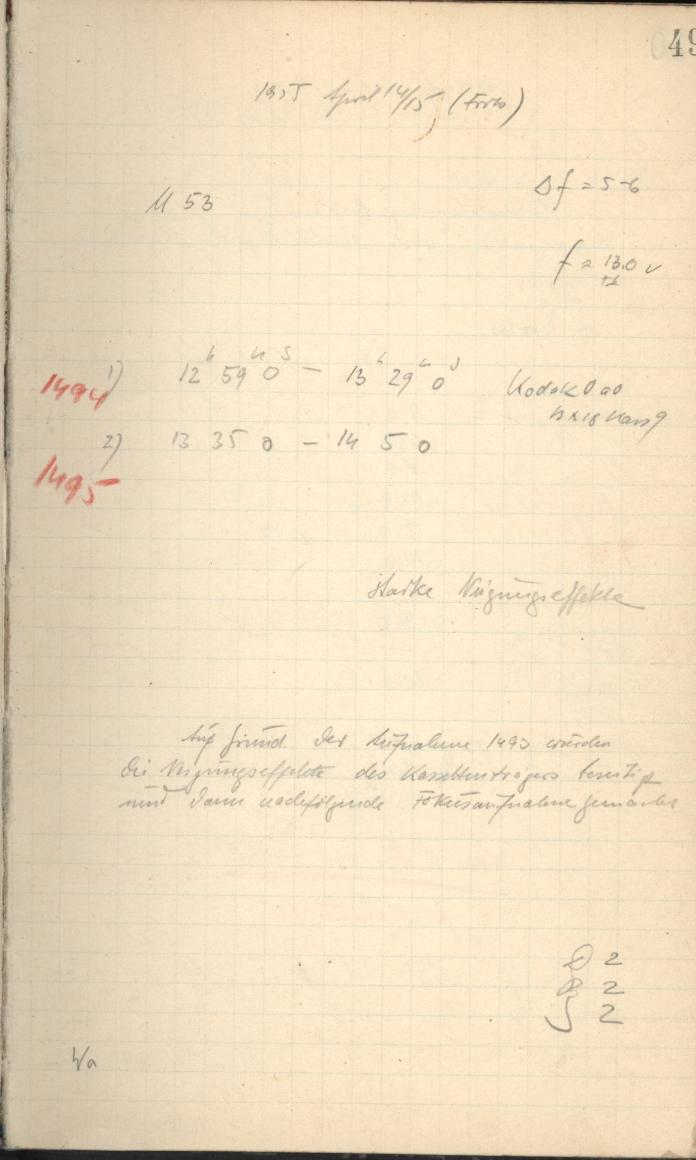 49
1955 April 14/15 (Forts)
Δf = 5-6
M 53
f = 13.0 v
±1
1) 12ʰ 59ᵐ 0ˢ — 13ʰ 29ᵐ 0ˢ
1494
Kodak 0a0
13x18 Kass 9
2) 13 35 0 — 14 5 0
1495
starke Neigungseffekte
Auf Grund der Aufnahme 1493 wurden
die Neigungseffekte des Kassettenträgers beseitigt
und dann nachfolgende Fokusaufnahme gemacht
D 2
R 2
S 2
Wa